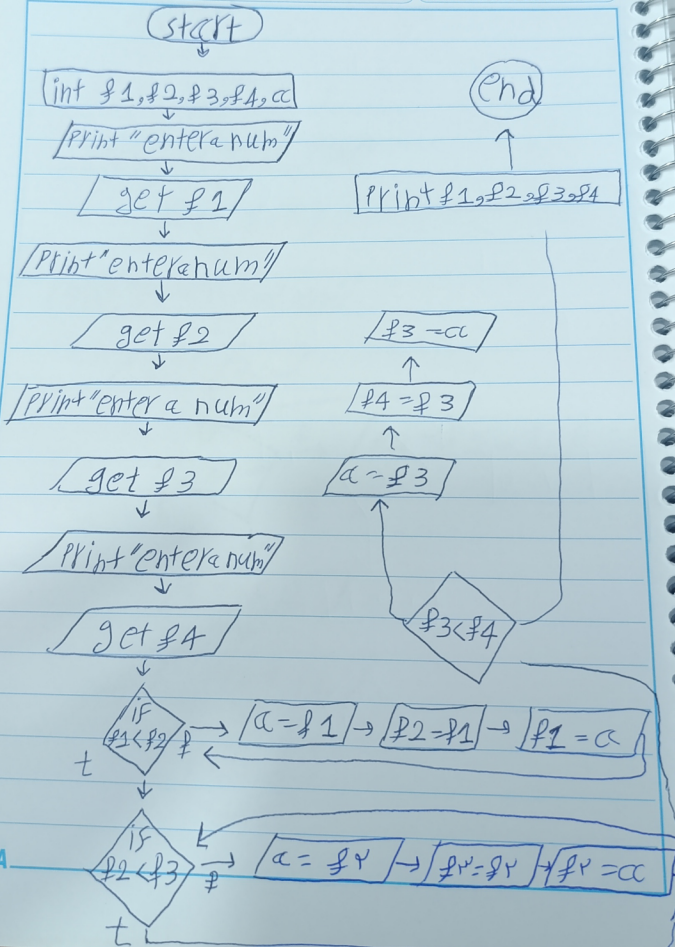 start
int f1,f2,f3,f4,a
Print "enter a num"
get f1
Print "enter a num"
get f2
Print "enter a num"
get f3
Print "enter a num"
get f4
if
f1<f2
f
t
a=f1
f2=f1
f1=a
if
f2<f3
f
t
a=f۲
f۳=f۲
f۳=a
f3<f4
a=f3
f4=f3
f3=a
Print f1,f2,f3,f4
end